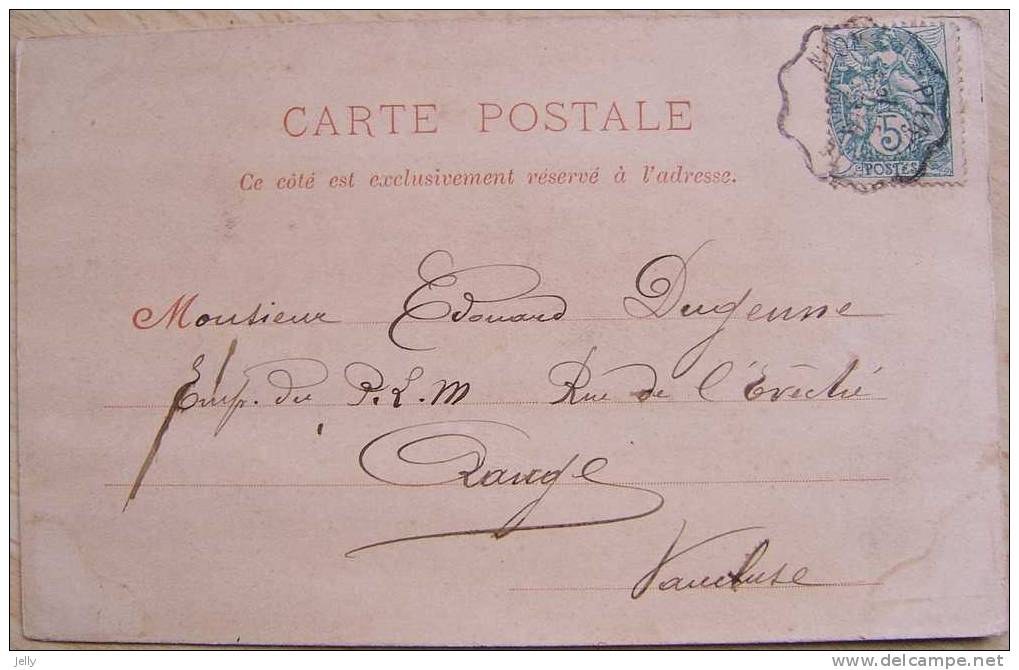 CARTE POSTALE
Ce côté est exclusivement réservé à l'adresse.
5
POSTES
Monsieur Edouard Dugenne
Emp. du P.L.M Rue de l'Évêché
Orange
Vaucluse
jelly
delcampe.net